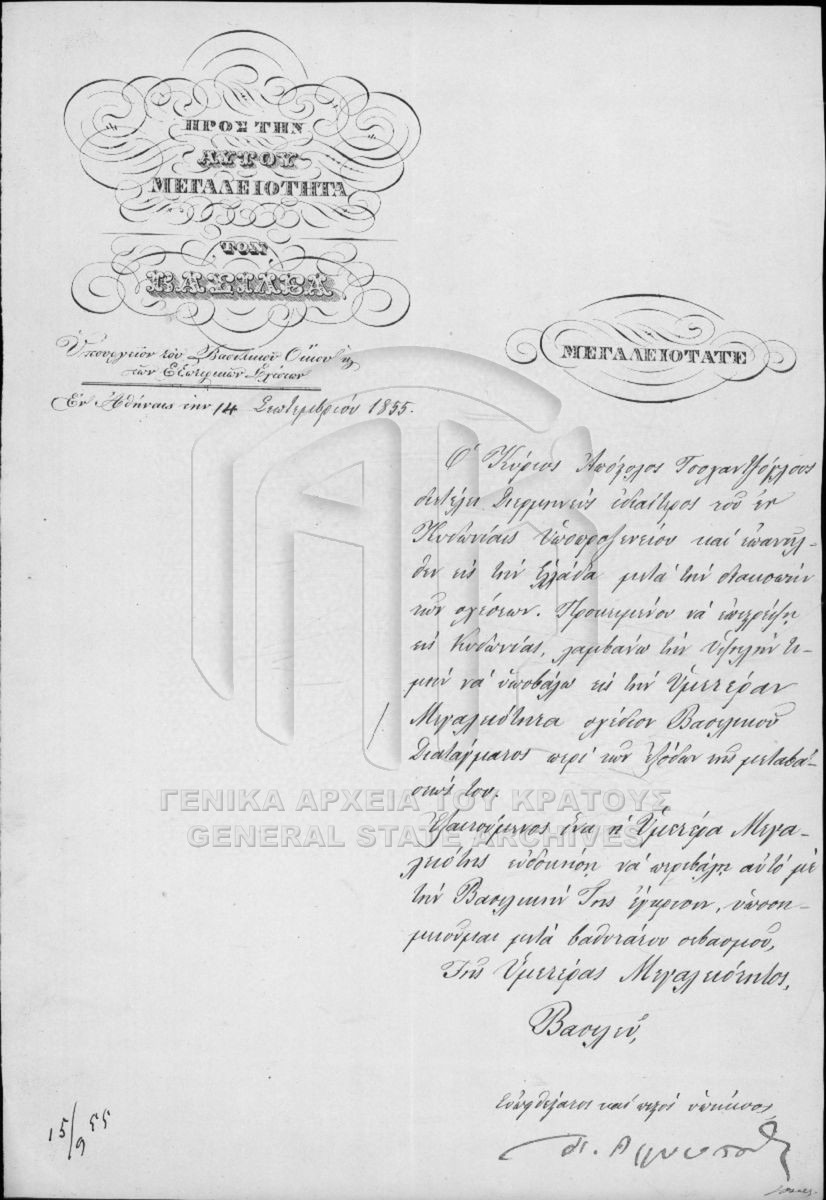 ΠΡΟΣ ΤΗΝ
ΑΥΤΟΥ
ΜΕΓΑΛΕΙΟΤΗΤΑ
ΤΟΝ
ΒΑΣΙΛΕΑ
Ὑπουργεῖον τοῦ Βασιλικοῦ Οἴκου κ
τῶν Ἐξωτερικῶν Σχέσεων
Ἐν Ἀθήναις τὴν 14 Σεπτεμβρίου 1855.
ΜΕΓΑΛΕΙΟΤΑΤΕ
Ὁ Κύριος Ἀπόστολος
διετέλει Διερμηνεὺς τοῦ ἐν
Κυδωνίαις Ὑποπροξενείου καὶ ἐπανῆλ-
θεν εἰς τὴν Ἑλλάδα μετὰ τὴν διακοπὴν
τῶν σχέσεων. Προκειμένου νὰ ἐπιστρέψῃ
εἰς Κυδωνίας, λαμβάνω τὴν ὑψηλὴν τι-
μὴν νὰ ὑποβάλω εἰς τὴν Ὑμετέραν
Μεγαλειότητα σχέδιον Βασιλικοῦ
Διατάγματος περὶ τῶν ἐξόδων τῆς μεταβά-
σεώς του.
Ἐξαιτούμενος ἵνα ἡ Ὑμετέρα Μεγα-
λειότης εὐδοκήσῃ νὰ περιβάλῃ αὐτὸ μὲ
τὴν Βασιλικήν Της ἔγκρισιν, ὑποση-
μειοῦμαι μετὰ βαθυτάτου σεβασμοῦ,
Τῆς Ὑμετέρας Μεγαλειότητος,
Βασιλεῦ,
Εὐπειθέστατος καὶ πιστὸς ὑπήκοος
15/9 55
ΓΕΝΙΚΑ ΑΡΧΕΙΑ ΤΟΥ ΚΡΑΤΟΥΣ
GENERAL STATE ARCHIVES